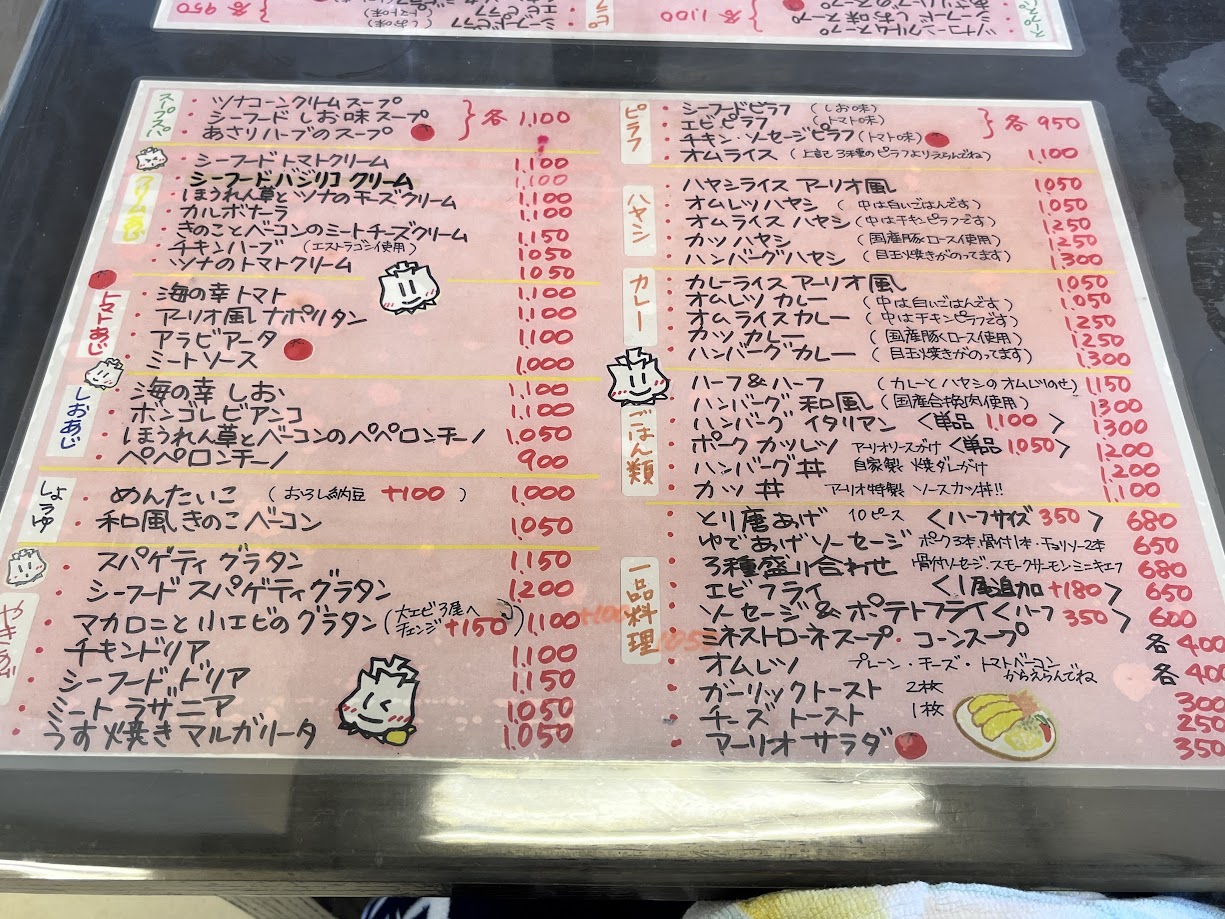 スープスパ
・ツナコーンクリームスープ
・シーフード しお味 スープ
・あさりハーブのスープ
各 1,100
クリームあじ
・シーフード トマトクリーム 1,100
・シーフード バジリコ クリーム 1,100
・ほうれん草とツナのチーズクリーム 1,100
・カルボナーラ 1,100
・きのことベーコンのミートチーズクリーム 1,150
・チキンハーブ (エストラゴン使用) 1,050
・ツナのトマトクリーム 1,050
トマトあじ
・海の幸 トマト 1,100
・アーリオ風 ナポリタン 1,100
・アラビアータ 1,100
・ミートソース 1,000
しおあじ
・海の幸 しお 1,100
・ボンゴレビアンコ 1,100
・ほうれん草とベーコンのペペロンチーノ 1,050
・ペペロンチーノ 900
しょうゆ
・めんたいこ (おろし納豆 +100) 1,000
・和風きのこベーコン 1,050
・スパゲティ グラタン 1,150
・シーフード スパゲティグラタン 1,200
・マカロニと小エビのグラタン (大エビ3尾へチェンジ +150) 1,100
・チキンドリア 1,100
・シーフードドリア 1,150
・ミートラザニア 1,050
・うす焼きマルガリータ 1,050
ピラフ
・シーフードピラフ (しお味)
・エビピラフ (トマト味)
・チキン・ソーセージピラフ (トマト味)
各 950
・オムライス (上記3種のピラフよりえらんでね) 1,100
ハヤシ
・ハヤシライス アーリオ風 1,050
・オムレツハヤシ (中は白いごはんです) 1,050
・オムライス ハヤシ (中はチキンピラフです) 1,250
・カツ ハヤシ (国産豚ロース使用) 1,250
・ハンバーグハヤシ (目玉焼きがのってます) 1,300
カレー
・カレーライス アーリオ風 1,050
・オムレツ カレー (中は白いごはんです) 1,050
・オムライスカレー (中はチキンピラフです) 1,250
・カツ カレー (国産豚ロース使用) 1,250
・ハンバーグカレー (目玉焼きがのってます) 1,300
ごはん類
・ハーフ&ハーフ (カレーとハヤシのオムレツのせ) 1,150
・ハンバーグ 和風 (国産合挽肉使用) 1,300
・ハンバーグ イタリアン <単品 1,100> 1,300
・ポークカツレツ アーリオソースがけ <単品 1,050> 1,200
・ハンバーグ丼 自家製 焼ダレがけ 1,200
・カツ丼 アーリオ特製 ソースカツ丼!! 1,100
一品料理
・とり唐あげ 10ピース <ハーフサイズ 350> 680
・ゆであげソーセージ ポーク3本、骨付1本・チョリソー2本 650
・3種盛り合わせ 骨付ソーセージ、スモークサーモン、ミニキエフ 680
・エビフライ <1尾追加 +180> 650
・ソーセージ&ポテトフライ <ハーフ 350> 600
・ミネストローネスープ・コーンスープ 各 400
・オムレツ プレーン・チーズ・トマトベーコンからえらんでね 各 400
・ガーリックトースト 2枚 300
・チーズトースト 1枚 250
・アーリオサラダ 350